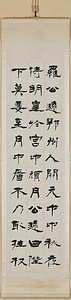 羅公遠鄂州人開元中中秋夜
侍明皇於宮中月公遠曰陛
下莫要至月中看乃取拄杖